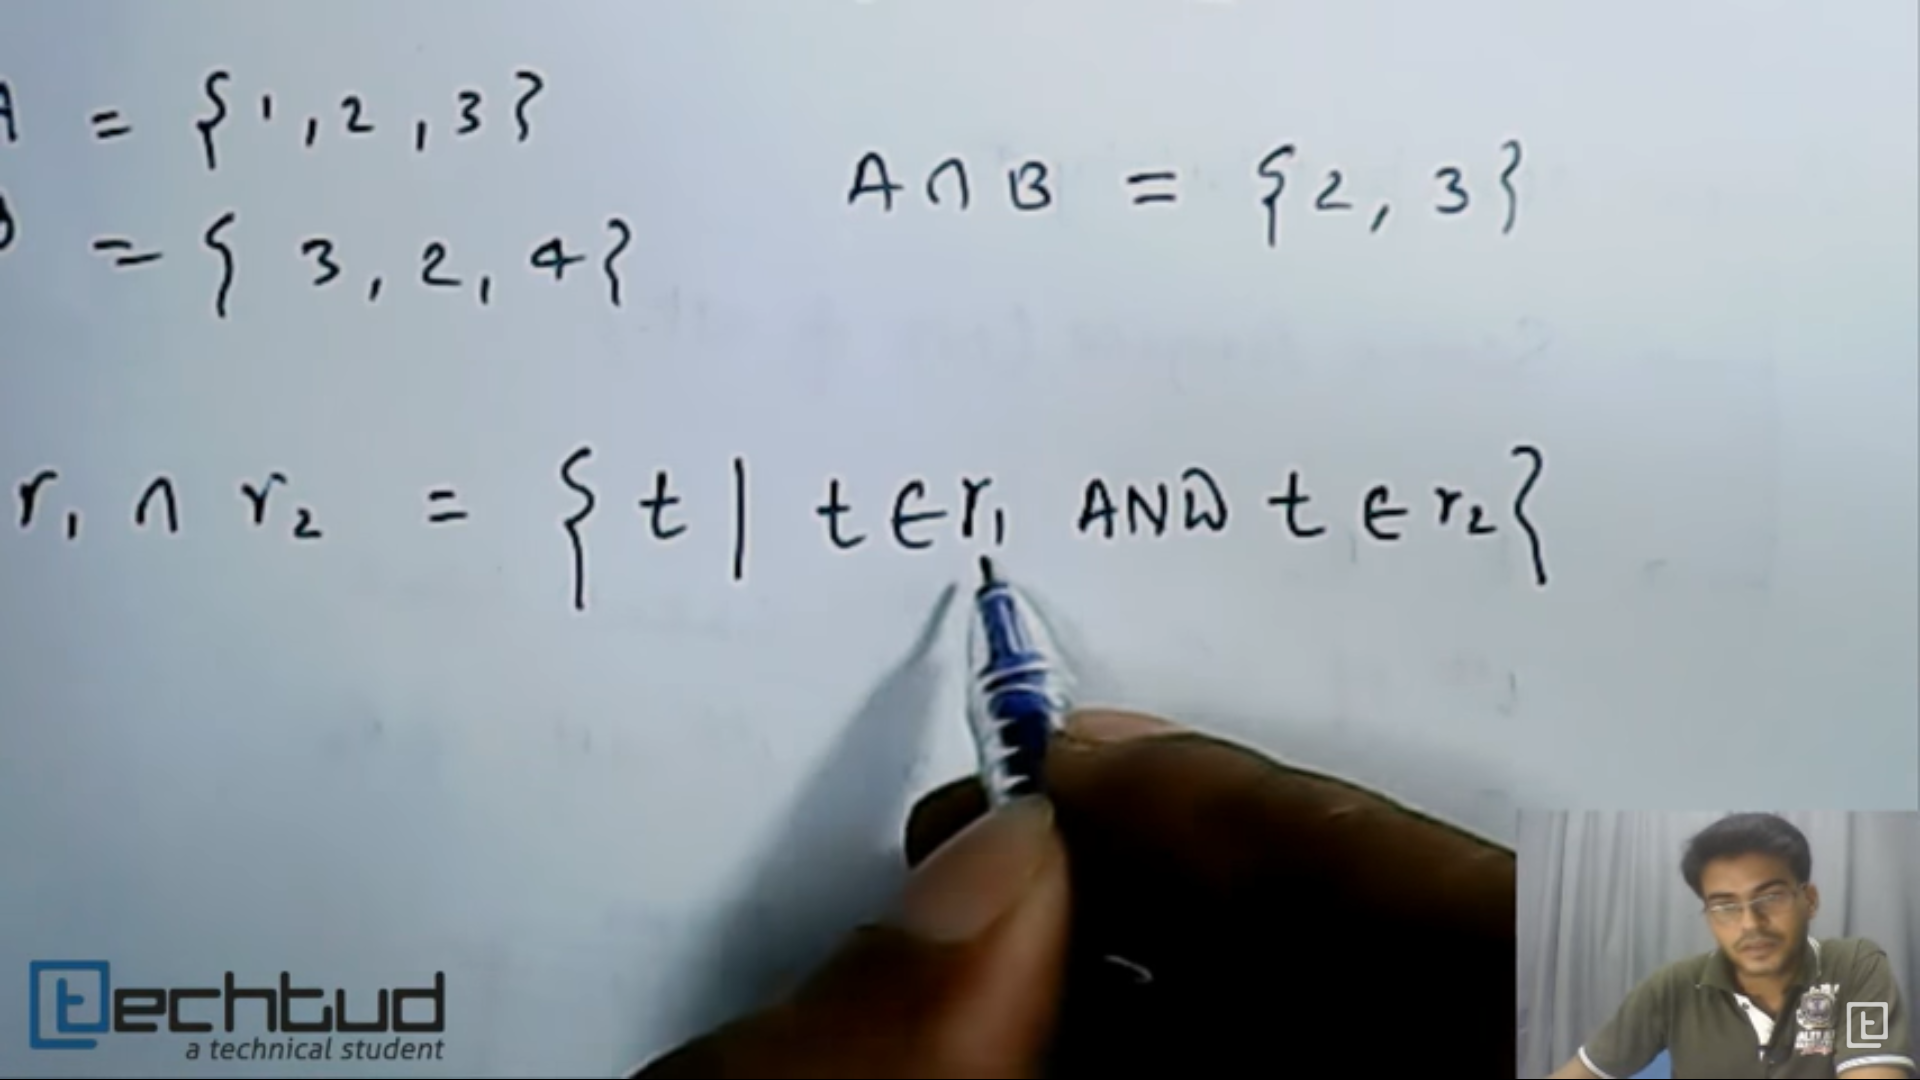 A = {1, 2, 3}
A ∩ B = {2, 3}
= { 3, 2, 4}
r₁ ∩ r₂ = { t | t ∈ r₁ AND t ∈ r₂}
techtud
a technical student